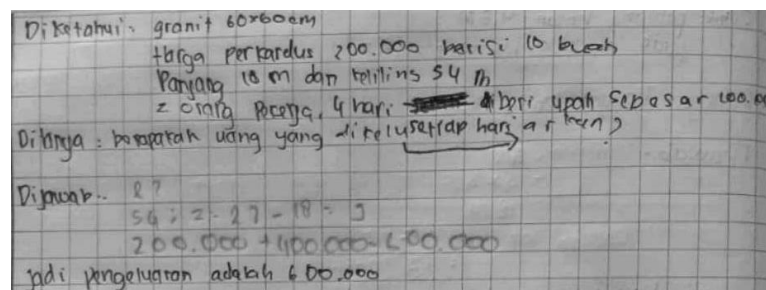 Diketahui: granit 60x60cm
Harga perkardus 200.000 berisi 10 buah
Panjang 18 m dan keliling 54 m
2 orang Pekerja, 4 hari diberi upah sebesar 100.0
Ditanya: berapakah uang yang dikelu setiap hari
Dijawab.. L?
54 : 2 = 27 - 18 = 9
200.000 + 400.000 = 600.000
Jadi pengeluaran adalah 600.000